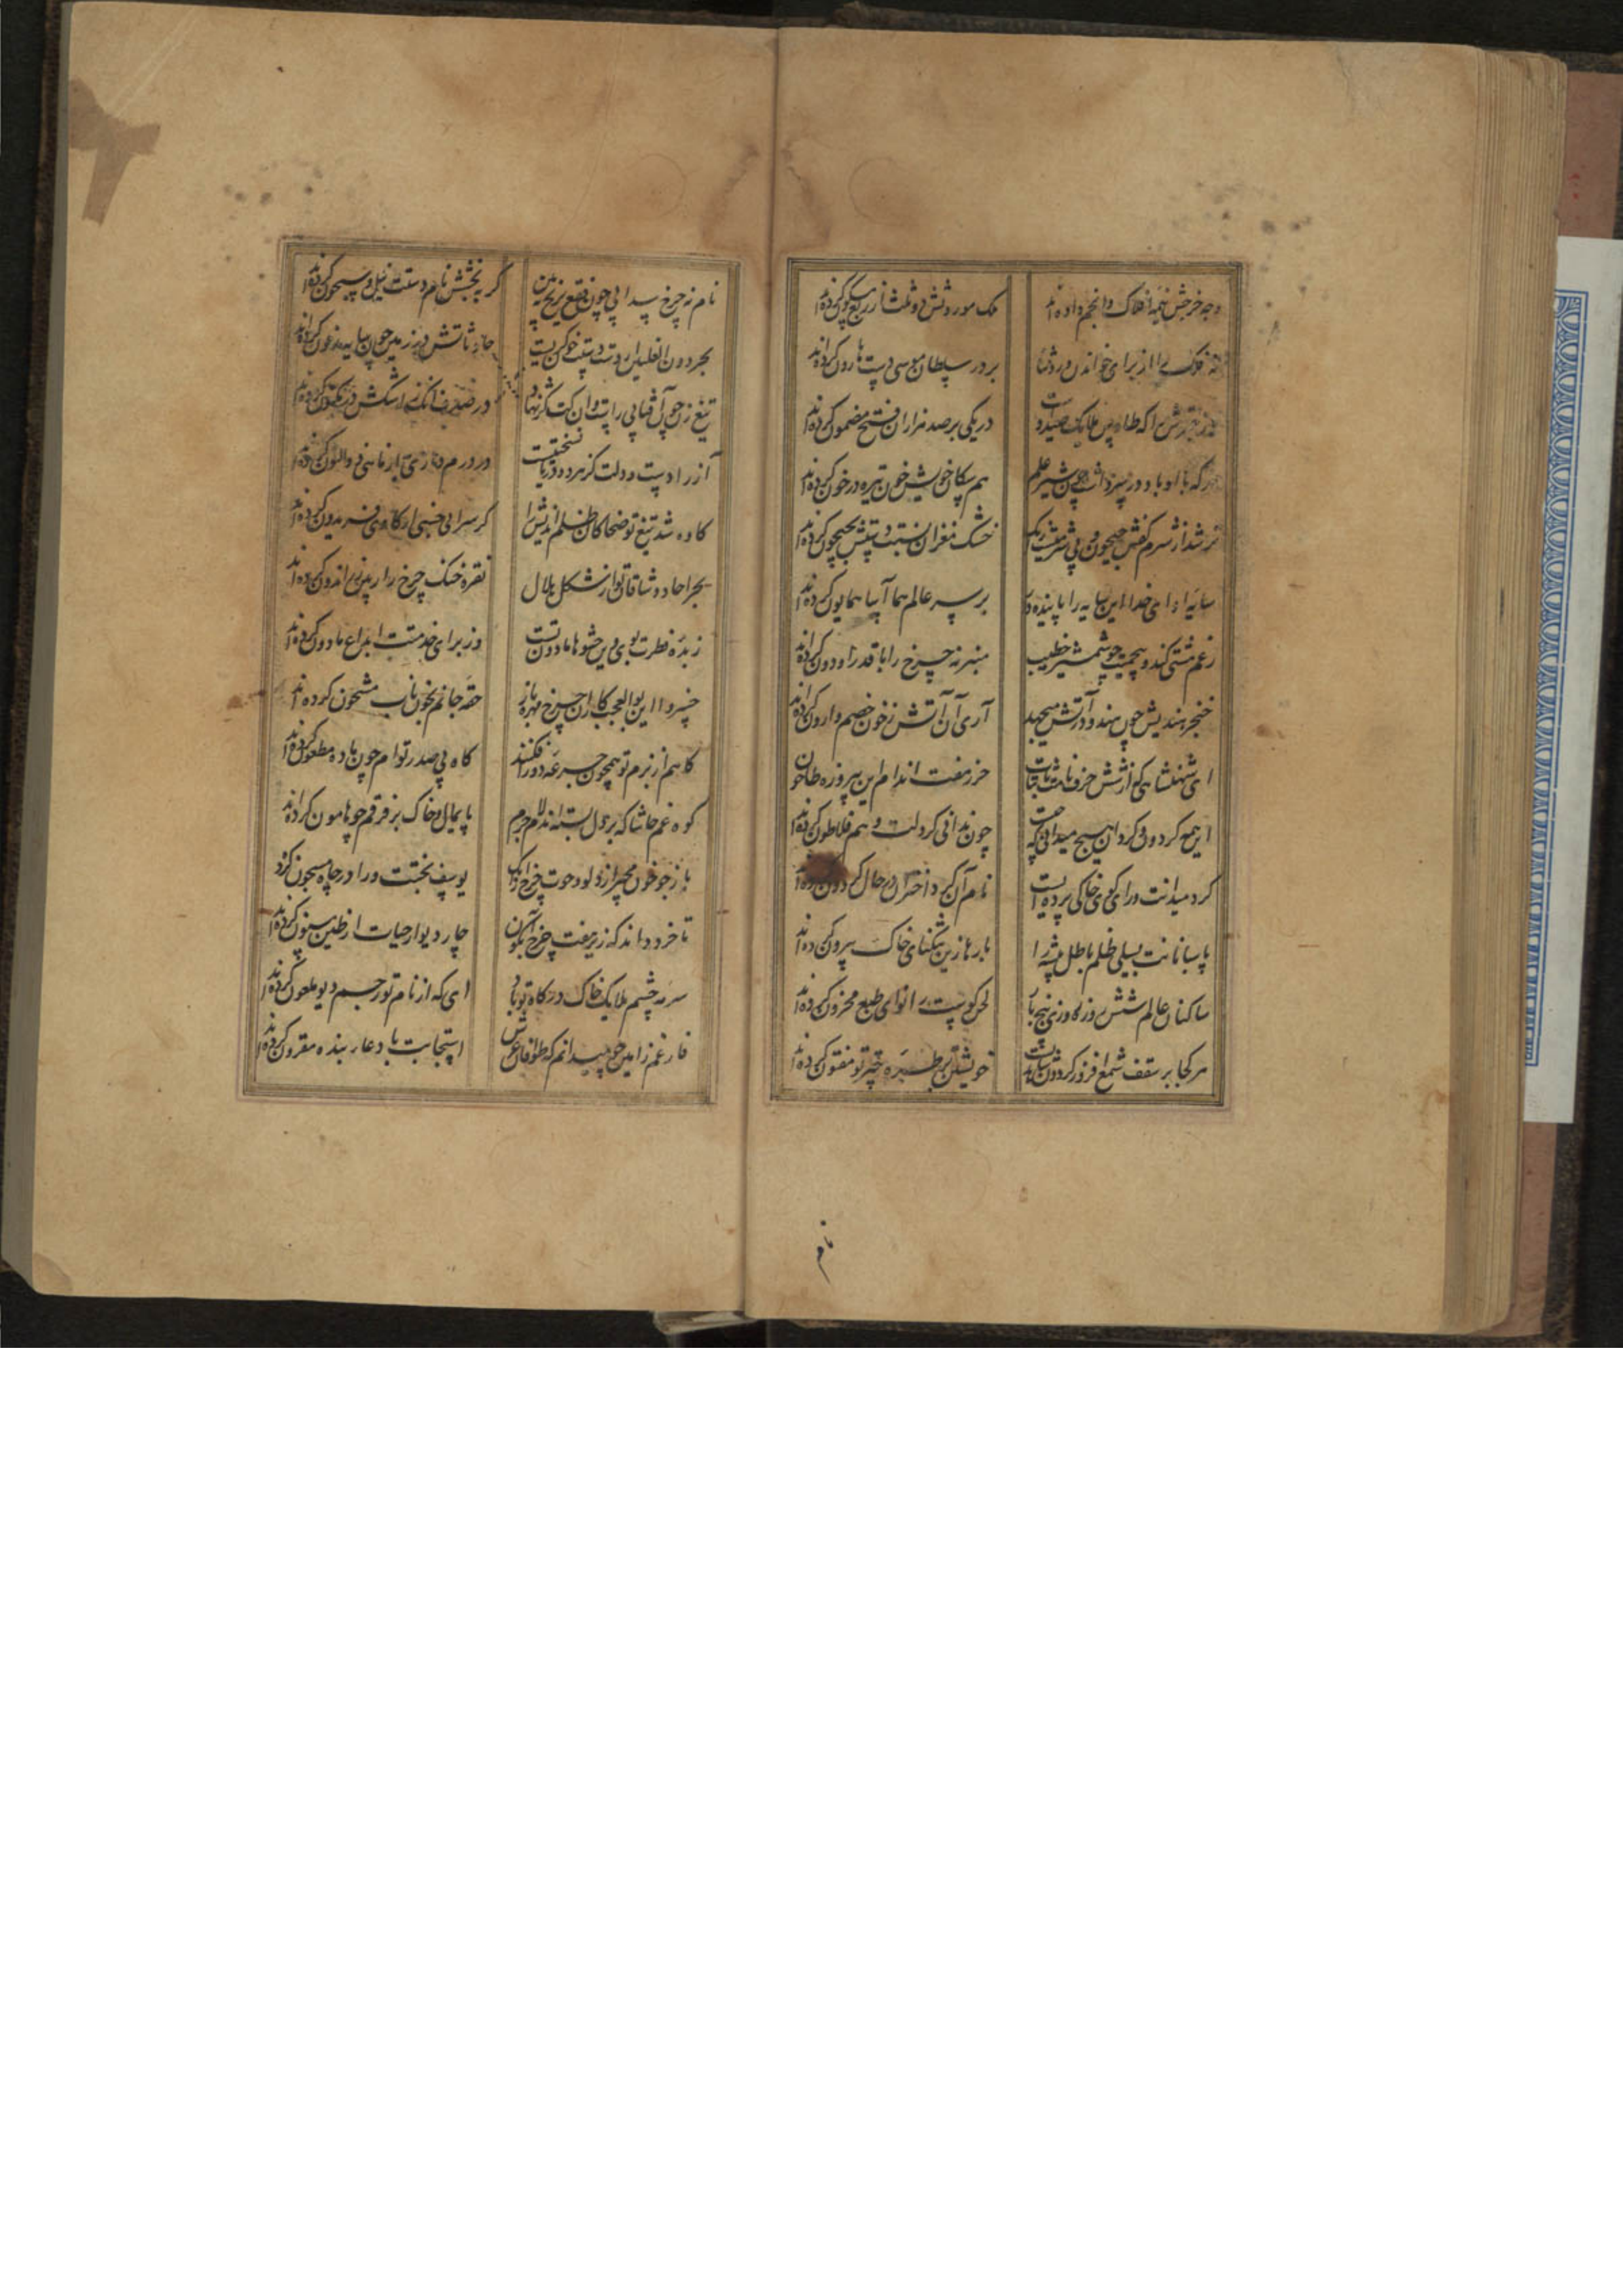 وجه خرجش نیمه افلاک و انجم داده اند ملک موروثش دو ثلث از ربع مسکون کرده اند
فلک را از برای خواندن ورد ثنا بر در سلطان موسی دست هارون کرده اند
را که طاوس ملایک صید اوست در یکی بر صد هزاران فتح مضمون کرده اند
هرکه با او باد در سر داشت چون شیر علم هم سکان خویش خون تیره در خون کرده اند
تر شد از شرم کفش جیحون و بی شرمیست خشک مغزان نسبت دستش بجیحون کرده اند
سایه او ای خدا این سایه را پاینده دار بر سر عالم هما آسا همایون کرده اند
زعم مشتی کند و بی حمیت چو شمشیر خطیب منبر نه چرخ را با قدر او دون کرده اند
خنجر هندیش چون هندو در آتش میجهد آری آن آتش ز خون خصم وارون کرده اند
ای شهنشاهی که نقش حرف نامت ثابتات حرز هفت اندام این پیروزه طاحون
این همه کردون و کردان هیچ میدانی که چیست چون ندانی کز دلت وهم فلاطون کرده اند
کرد میدانت ورای کوی خاکی پرده ایست نام آن کرد اختران در حال کردون کرده اند
پاسبانانت بسیلی ظلم باطل پیشه را بارها زین تنکنای خاک بیرون کرده اند
ساکنان عالم شش روزه روزی پنج بار لحن کوست را نوای طبع محزون کرده اند
هر کجا بر سقف شمع افروز کردون شاهدیست خویشتن بر طره چتر تو مفتون کرده اند
نام
نام نه چرخ سدابی چون فقع بر یخ ببین کر به بخشش نام دستت نیل و سیحون کرده اند
حادثاتش در زمین چون سایه مدفون کرده اند
تیغ زن چون آفتابی راست در ضمیر
آز را دست و دلت کز هر دو دریا نسختیست در ورم
کاوه شد تیغ تو ضحاکان ظلم اندیش را کر سرایی خنجی از کاوی فریدون کرده اند
بحر احاد وشاقان تو از شکل هلال نقره خنک چرخ را زرین اندرون کرده اند
زبده فطرت توی وین حشوها مادون تست وز برای خدمتت ابداع مادون کرده اند
خسروا این بوالعجب کاران چرخ مهره باز حقه جانم بخون ناب مشحون کرده اند
کاهم از بزم تو همچون جرعه دور افکنند کاه بی صدر توام چون باده مطعون کرده اند
کوه غم حاشا که بر دل بسته اند لاجرم پایمال و خاک بر فرقم چو هامون کرده اند
باز جو خون مجیر از دلو و حوت چرخ یوسف بختت ورا در چاه مسجون کرده اند
تا خرد داند که زیر هفت چرخ آبکون چار دیوار حیات از طین مسنون کرده اند
سرمه چشم ملایک خاک درکاه تو باد ای که از نام تو رجم دیو ملعون کرده اند
فارغم زآمین چو میدانم که طوافان عرش استجابت با دعای بنده مقرون کرده اند